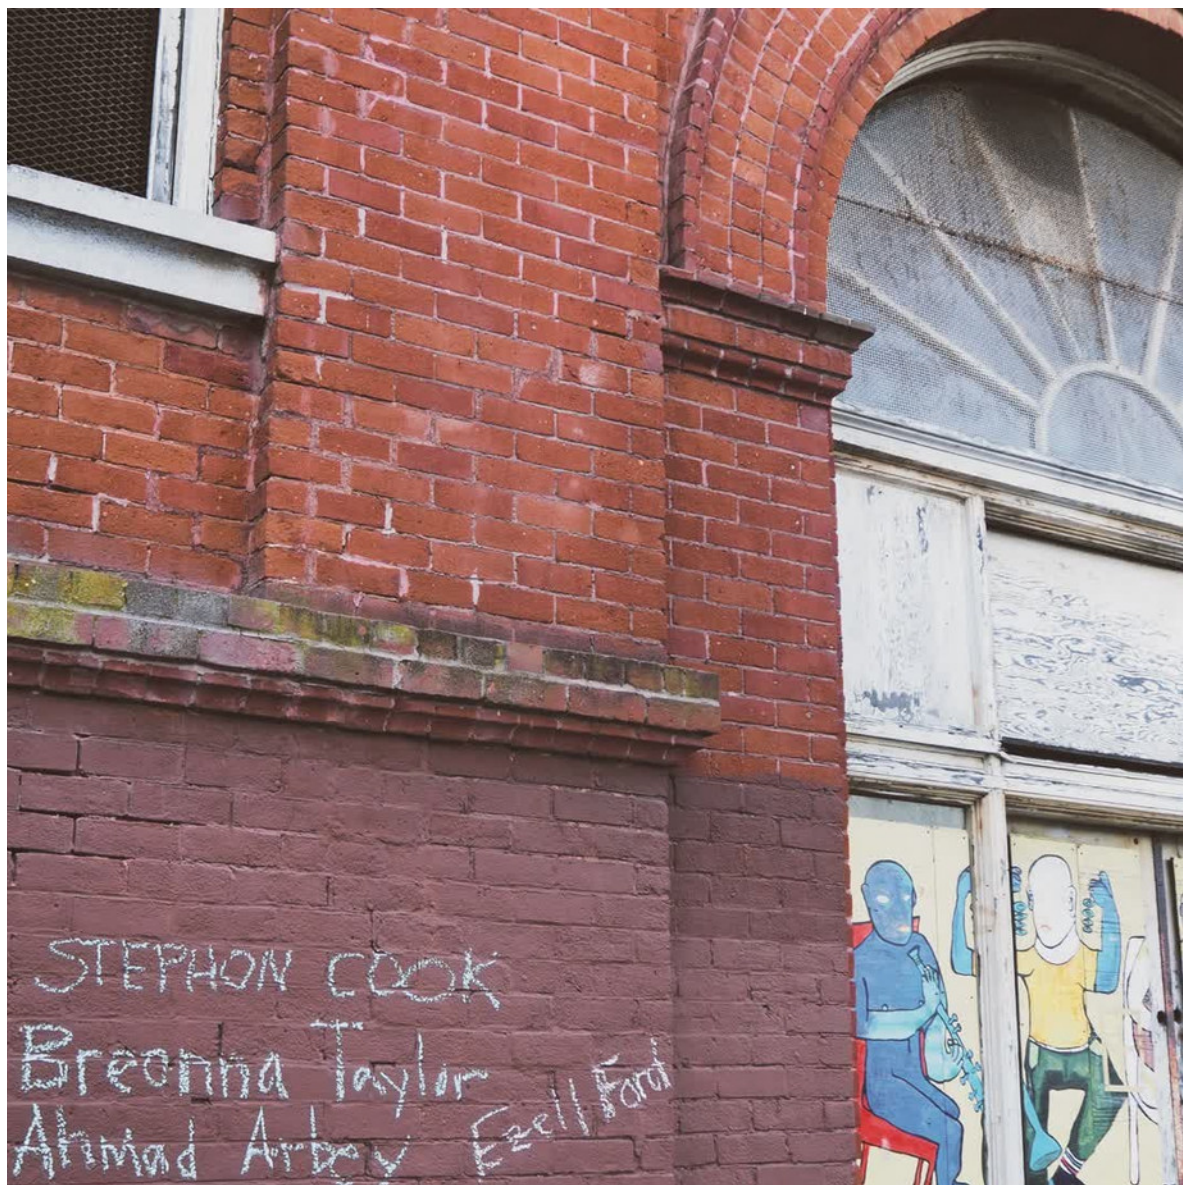 STEPHON COOK
Breonna Taylor
Ahmad Arbey
Ezell Ford